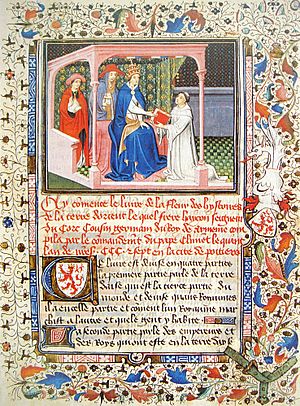 Cy comence le livre de la fleur des hystoires
de la terre dorient le quel frere hayton seigneur
du Corc Cousin germain du Roy de armenie com
pila par le comandement du pape
lan de CCC et sept en la cite de poitiers
Ce livre est devise en quatre parties
la premiere partie parle de la terre
dasie qui est la tierce partie du
monde et devise quans Roiaumes
il a en celle partie et coment lun Roiaume mar
chist a lautre et quele gent y habite
La seconde partie parle des empereurs et
des Roys qui ont este en la terre dasie